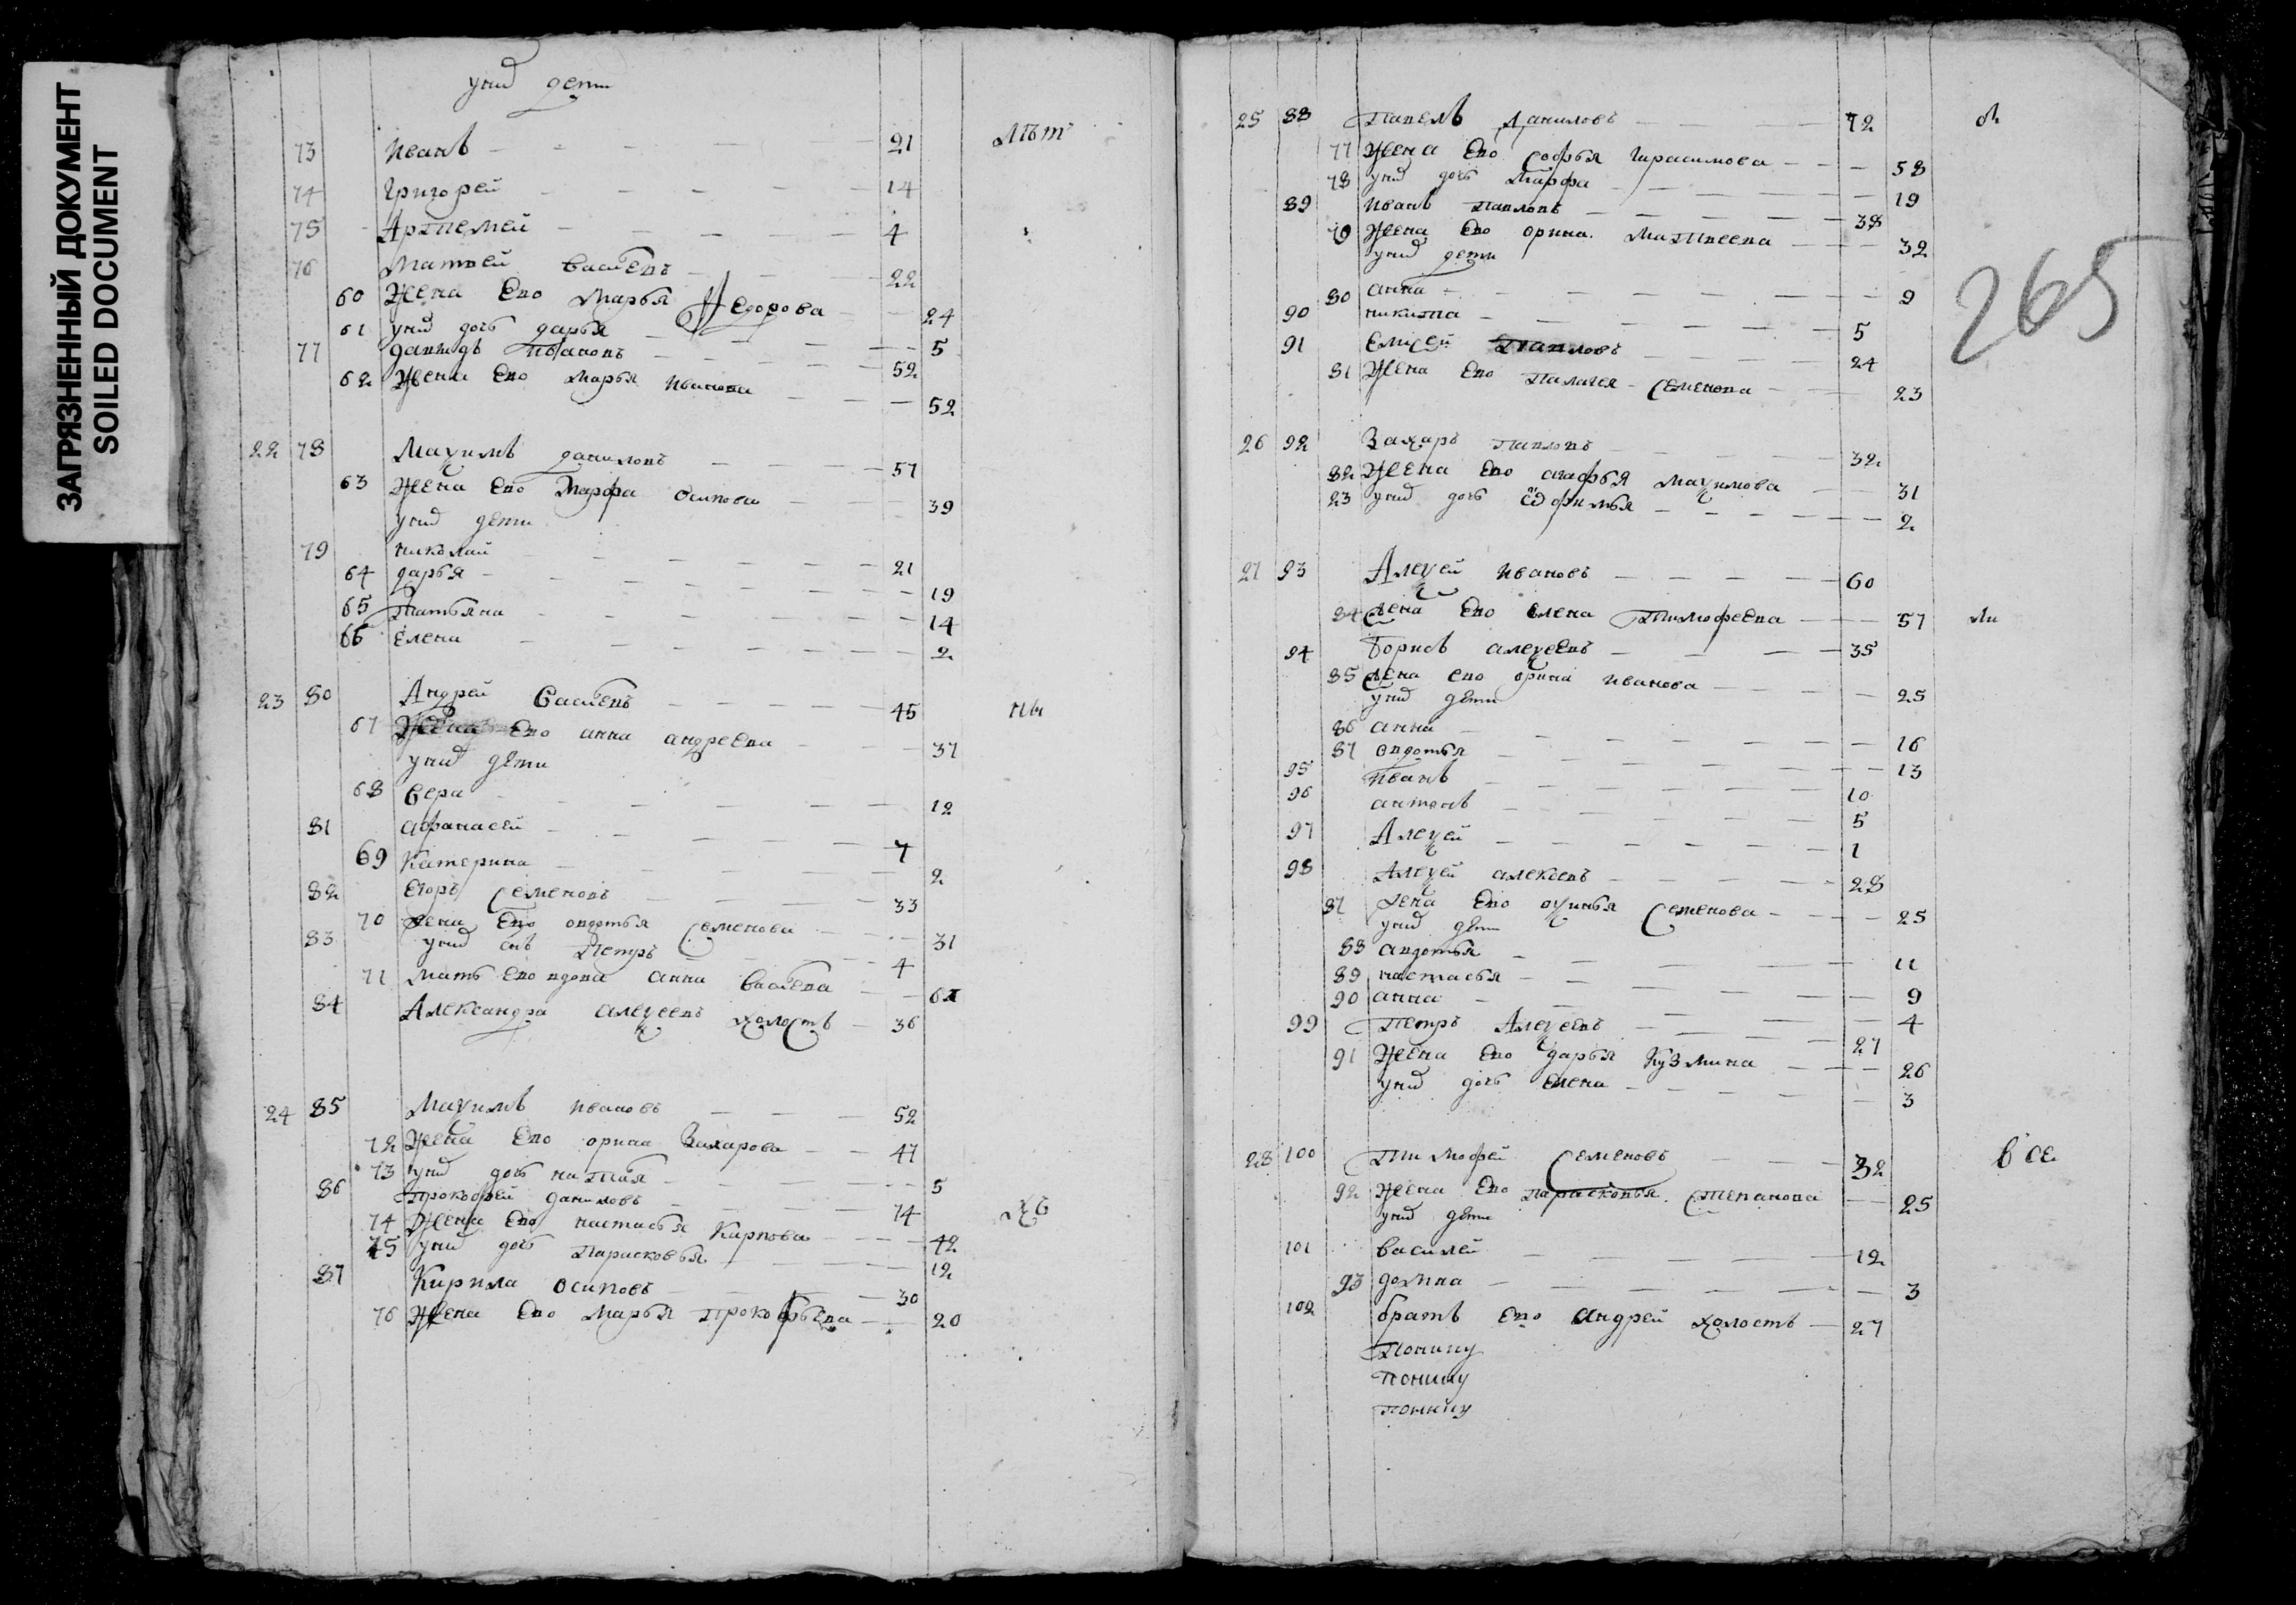 ЗАГРЯЗНЕННЫЙ ДОКУМЕНТ
SOILED DOCUMENT
унид дети
73 Иванъ 21
74 Григорей 14
75 Артемей 4
76 Матвей Васильевъ 22
60 Жена Ево Марья Федорова 24
61 унид дочь дарья 5
77 давыдъ Ивановъ 52
62 Жена Ево Марья Иванова 52
22 78 Маѯимъ даниловъ 57
63 Жена Ево Марфа Осипова 39
унид дети
79 николай 21
64 дарья 19
65 Татьяна 14
66 Елена 2
23 80 Андрей Васильевъ 45
67 Жена Ево анна андреева 37
унид дети
68 Вера 12
81 афанасей 7
69 Катерина 2
82 Егоръ Семеновъ 33
70 Жена Ево овдотья Семенова 31
83 унид снъ Петръ 4
71 Мать Ево вдова анна Васильева
84 Александра алеѯеевъ холостъ 36
24 85 Маѯимъ Ивановъ 52
72 Жена Ево орина Захарова 47
73 унид дочь наталя 5
86 Прокофей даниловъ 74
74 Жена Ево настасья Карпова 42
75 унид дочь Парасковья 12
87 Кирила Осиповъ 30
76 Жена Ево Марья Прокофьева 20
лѣт
ны
хъ
25 88 Павелъ Даниловъ 72
77 Жена Ево Софья Гарасимова 58
78 унид дочь Марфа 19
89 Иванъ Павловъ 38
79 Жена Ево орина Матвеева 32
унид дети
80 анна 9
90 никита 5
91 Елисей Павловъ 24
81 Жена Ево Палагея Семенова 23
26 92 Захаръ Павловъ 32
82 Жена Ево агафья Маѯимова 31
23 унид дочь Офимья 2
27 93 Алеѯей Ивановъ 60
84 Жена Ево Елена Тимофеева 57
94 Борисъ алеѯеевъ 35
85 Жена ево орина Иванова 25
унид дети
86 анна 16
87 овдотья 13
95 Иванъ 10
96 антонъ 5
97 Алеѯей 1
98 Алеѯей алексеевъ 28
87 Жена Ево аѯинья Семенова 25
унид дети
88 авдотья 11
89 настасья 9
90 анна 4
99 Петръ Алеѯеевъ 27
91 Жена Ево дарья Кузмина 26
унид дочь Елена 3
28 100 Тимофей Семеновъ 32
92 Жена Ево Парасковья Степанова 25
унид дети
101 Василей 12
93 домна 3
102 братъ Ево Андрей холостъ 27
265